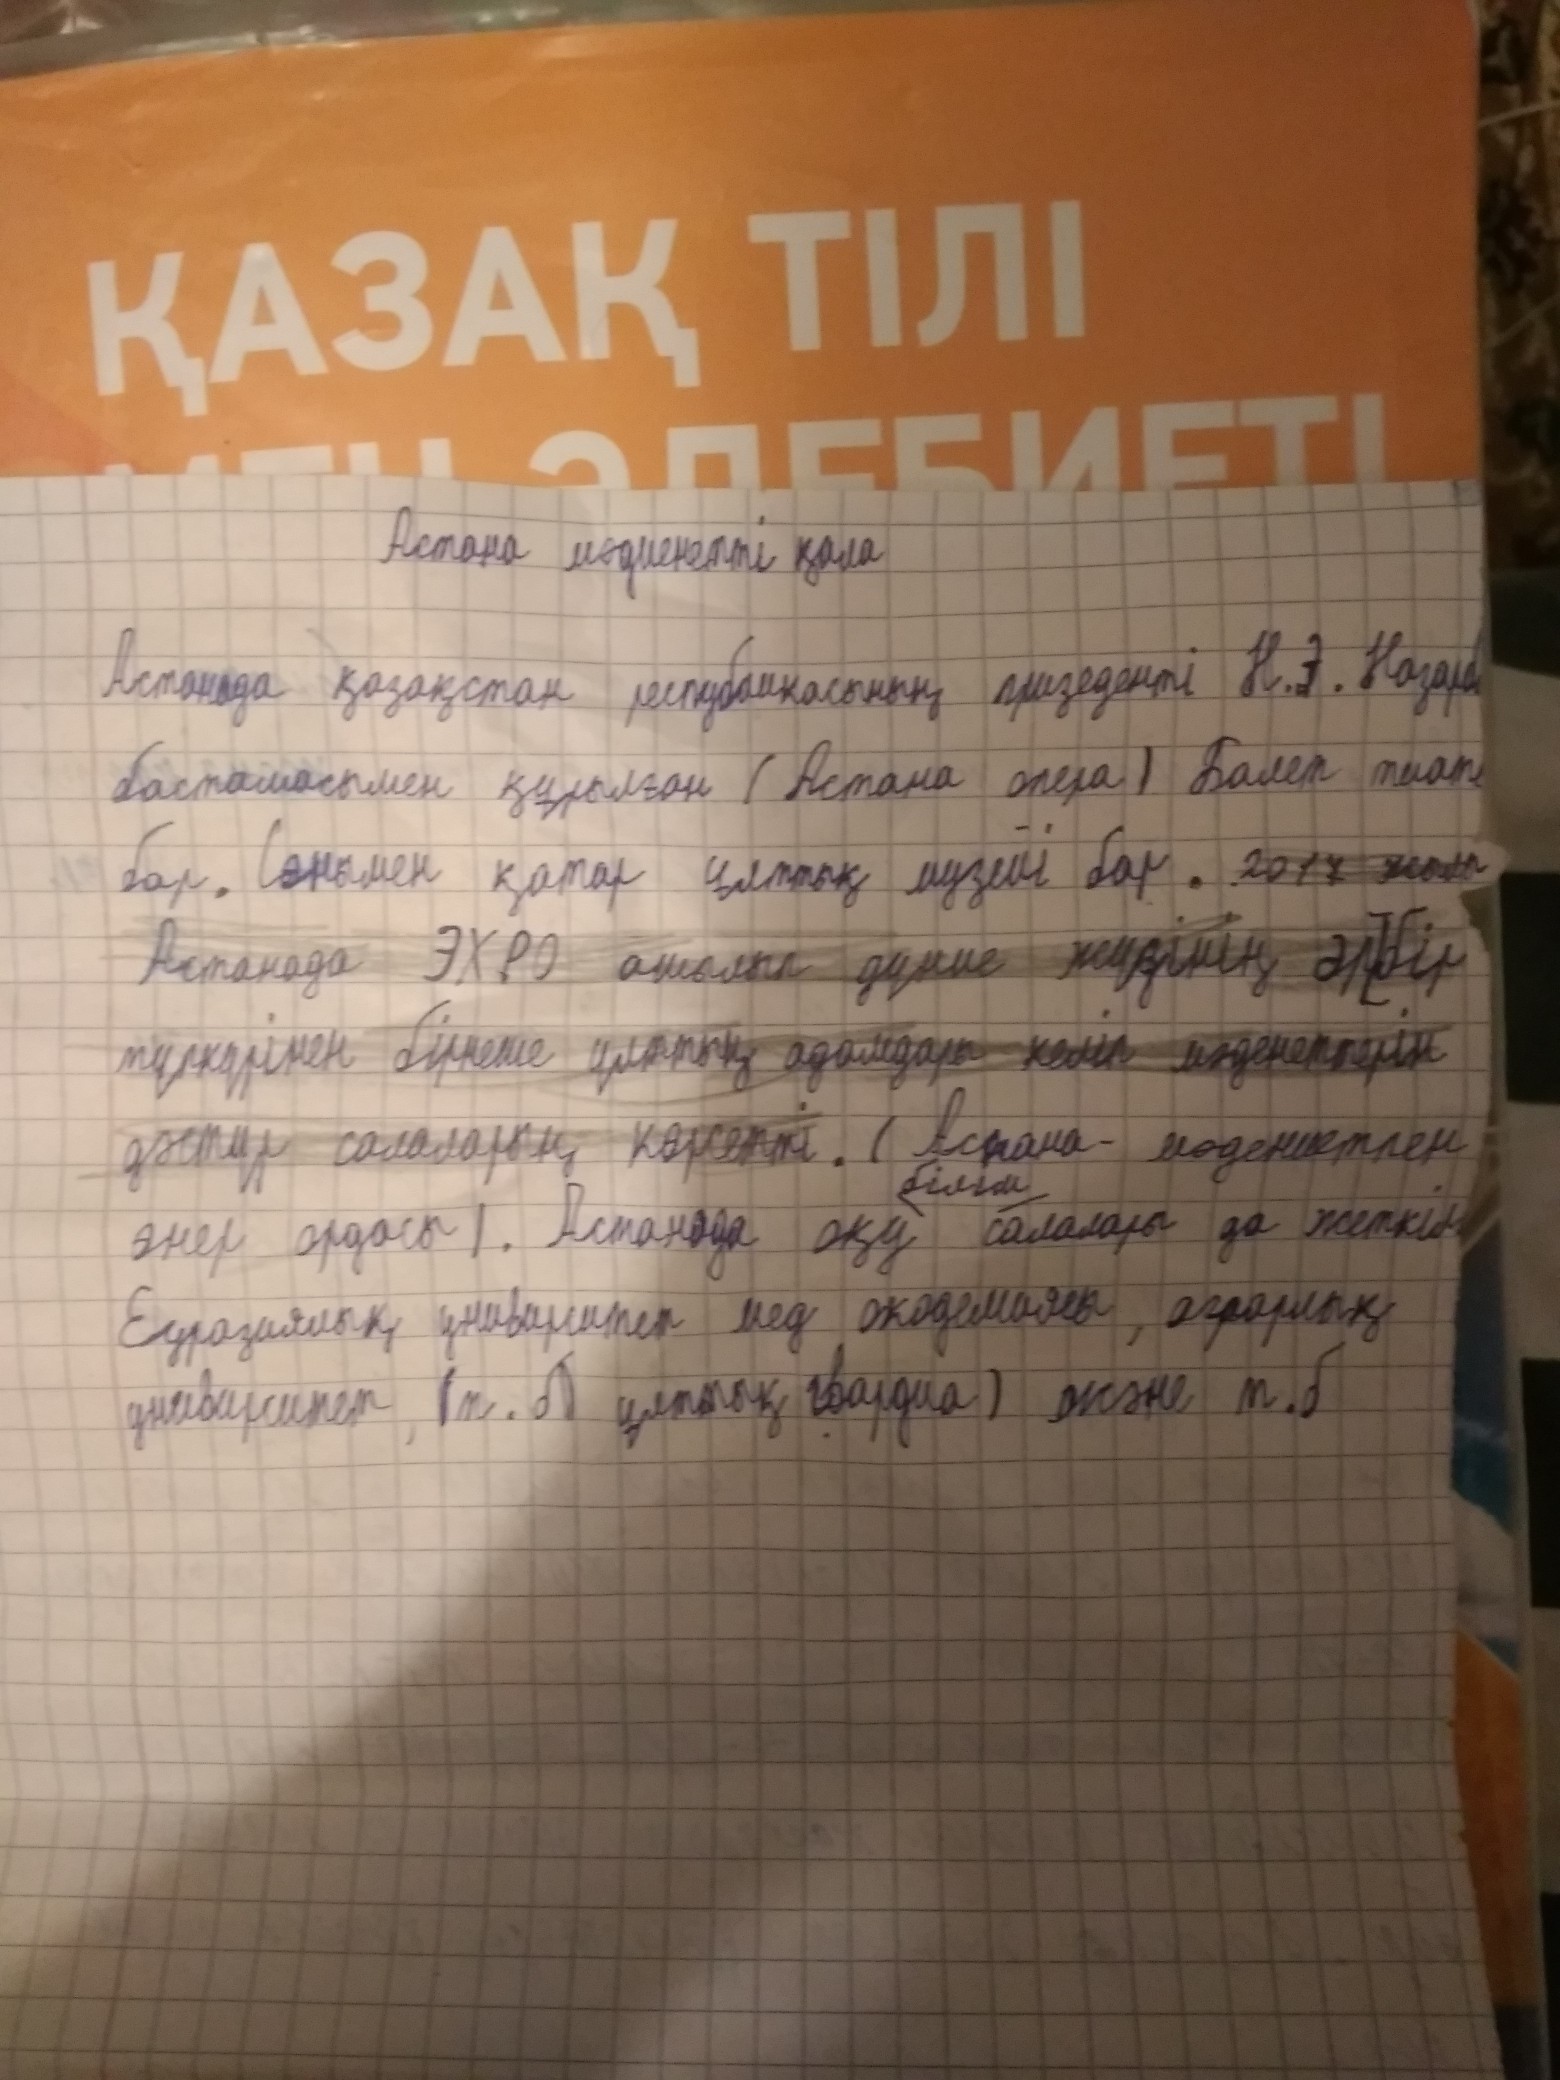 ҚАЗАҚ ТІЛІ
МЕН ӘДЕБИЕТІ
Астана мәдиенетті қала
Астанада қазақстан республикасының призеденті Н.Ә. Назарб
бастамасымен құрылған (Астана опера) Балет тиат
бар. Сонымен қатар ұлттық музейі бар. 2017 жылы
Астанада ЭХРО ашылып дүние жүзінің әрбір
түкпірінен бірнеше ұлттың адамдары келіп мәденеттерін
дәстүр салаларын көрсетті. (Астана - мәдениетпен
білім
өнер ордасы). Астанада оқу салалары да жеткіл
Еуразиялық университет мед академиясы, аграрлық
университет, (т.б) ұлттық гвардиа) және т.б